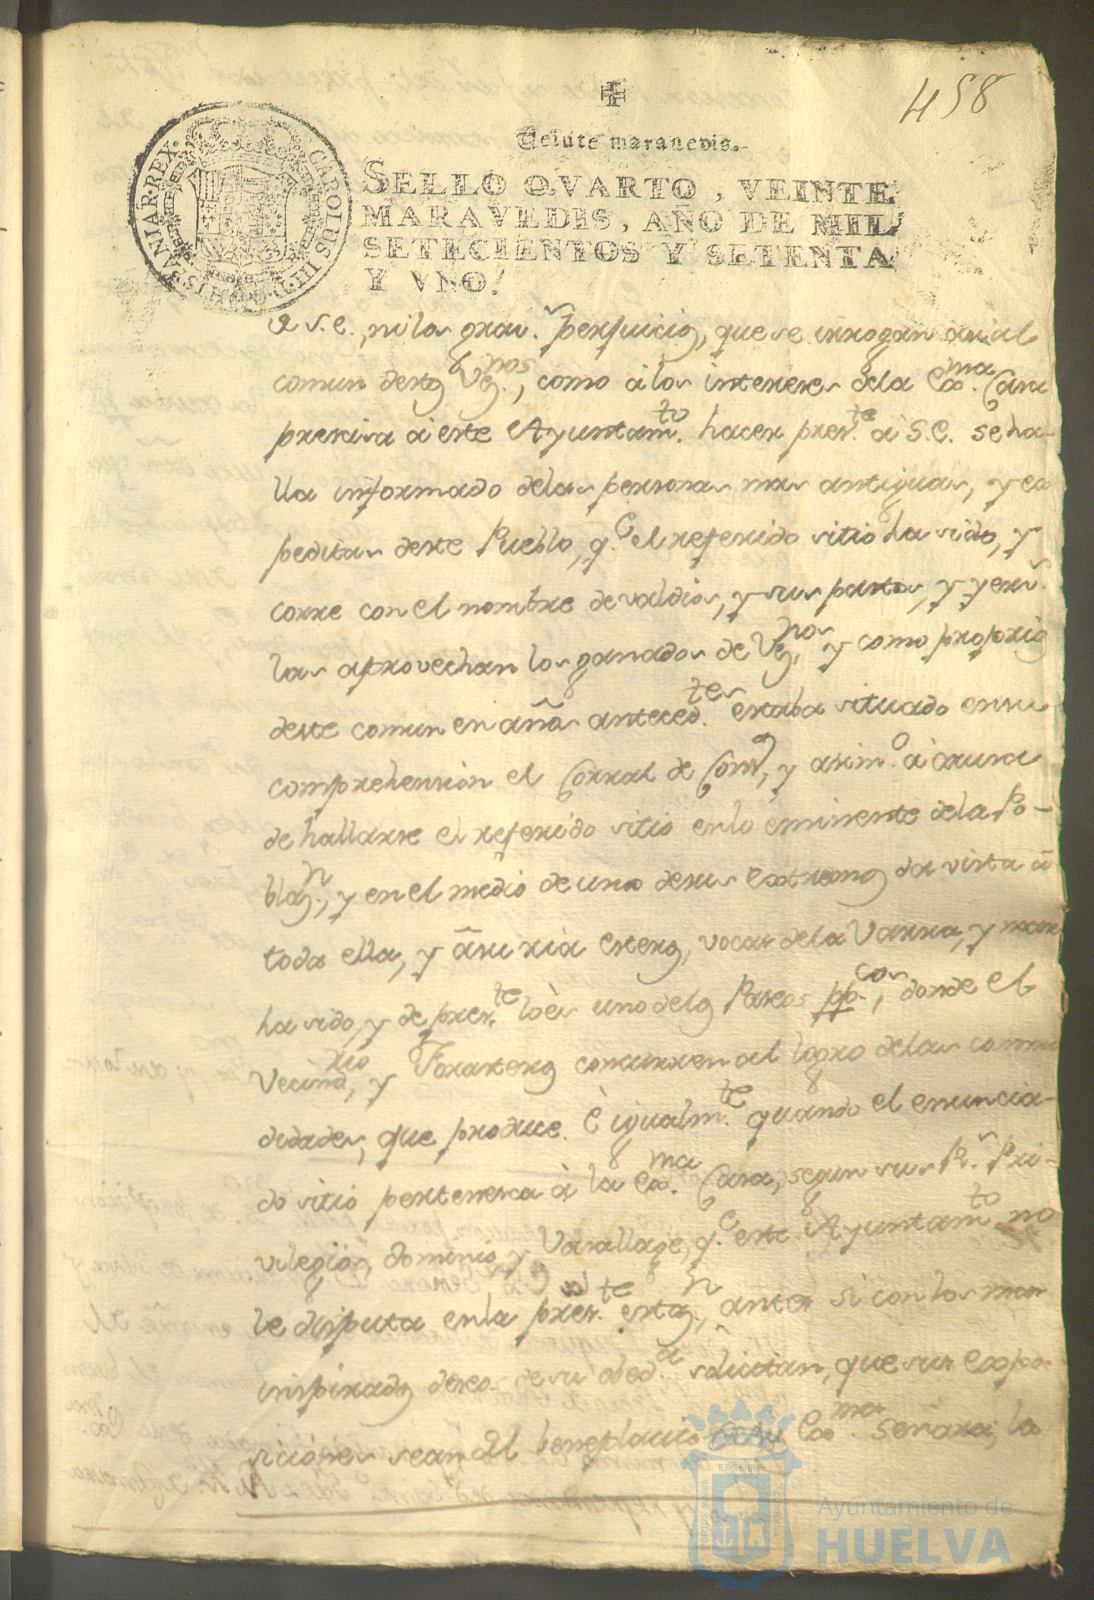 458
Veinte maravedis.
SELLO QVARTO, VEINTE
MARAVEDIS, AÑO DE MIL
SETECIENTOS Y SETENTA
Y VNO.
CAROLUS III D G HISPANIAR REX
a S.E., ni los grav.s perjuicios, que se irrogan asi al
comun destos Vez.nos, como à los intereses dela Exx.ma Casa
precisa à este Ayuntam.to hacer pres.te à S.E. se ha-
lla informado delas personas mas antiguas, y ex
peditas deste Pueblo, q.e el referido sitio ha sido, y
corre con el nombre de valdios, y sus pastos, y yerv.s
las aprovechan los ganados de Vez.nos y como proprio
deste comun en años anteced.tes estaba situado en su
comprehension el Corral de Com.s, y asim.o à causa
de hallarse el referido sitio en lo eminente dela Po-
blaz.n, y en el medio de uno desus extremos da vista à
toda ella, y à su ria esteros, vocas dela Varra, y mar
ha sido, y de pres.te lo es uno delos Paseos pp.cos, donde el
Vecind.rio y Forasteros concurren al logro delas como
didades, que produce. E igualm.te quando el enuncia-
do sitio pertenesca à la Exx.ma Casa, segun sus R.s Pri-
vilegios, dominio, y Vasallage, q.e este Ayuntam.to no
le disputa en la pres.te estaz.n, antes si con los mas
inspirados deseos de su obed.a solicitan, que sus expo-
siciones sean del beneplacito de su Exx.ma Señora; lo
Ayuntamiento de
HUELVA